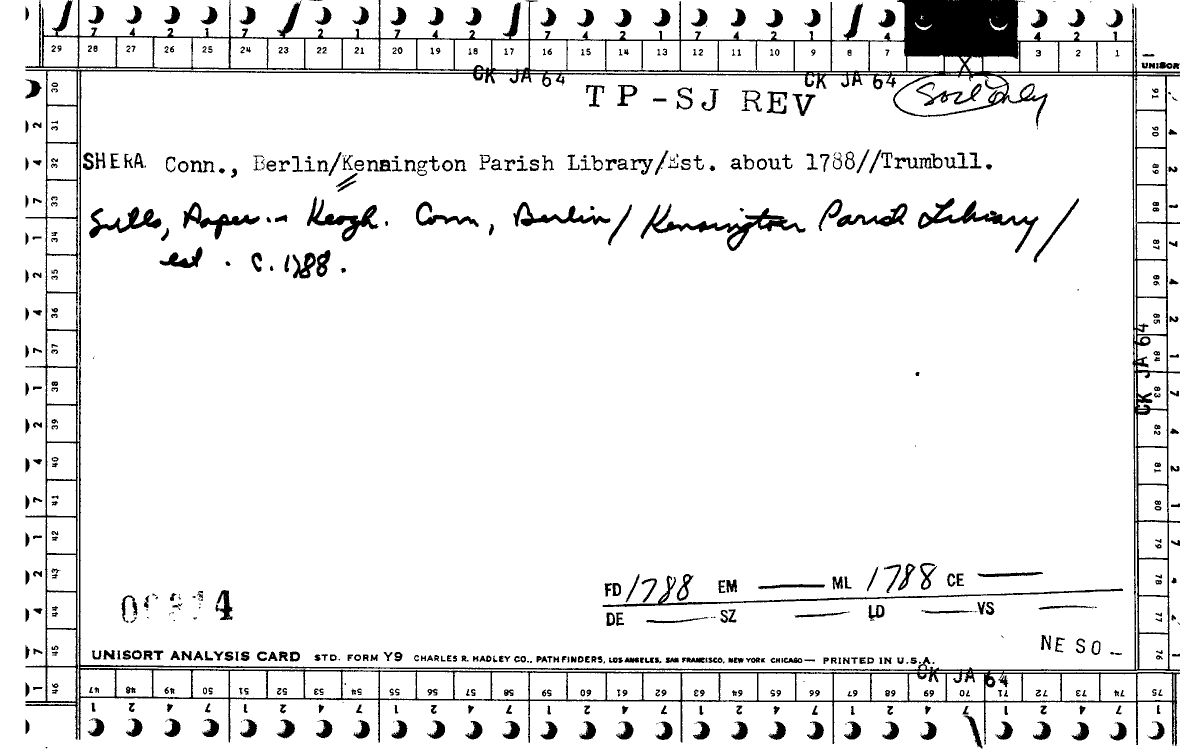 7 4 2 1 7 4 2 1 7 4 2 1 7 4 2 1 7 4 2 1 7 4 2 1
29 28 27 26 25 24 23 22 21 20 19 18 17 16 15 14 13 12 11 10 9 8 7 3 2 1
UNISORT
CK JA 64 CK JA 64 X
TP-SJ REV Socl Only
SHERA Conn., Berlin/Kensington Parish Library/Est. about 1788//Trumbull.
Sills, Paper in Keogh. Conn, Berlin/ Kensington Parish Library/
est. c. 1788.
30 31 32 33 34 35 36 37 38 39 40 41 42 43 44 45 46
91 90 89 88 87 86 85 84 83 82 81 80 79 78 77 76
CK JA 64
FD 1788 EM — ML 1788 CE —
DE — SZ — LD — VS —
NE SO -
UNISORT ANALYSIS CARD STD. FORM Y9 CHARLES R. HADLEY CO., PATHFINDERS, LOS ANGELES, SAN FRANCISCO, NEW YORK CHICAGO — PRINTED IN U.S.A.
CK JA 64
47 48 49 50 51 52 53 54 55 56 57 58 59 60 61 62 63 64 65 66 67 68 69 70 71 72 73 74 75
1 2 4 7 1 2 4 7 1 2 4 7 1 2 4 7 1 2 4 7 1 2 4 7 1 2 4 7 1